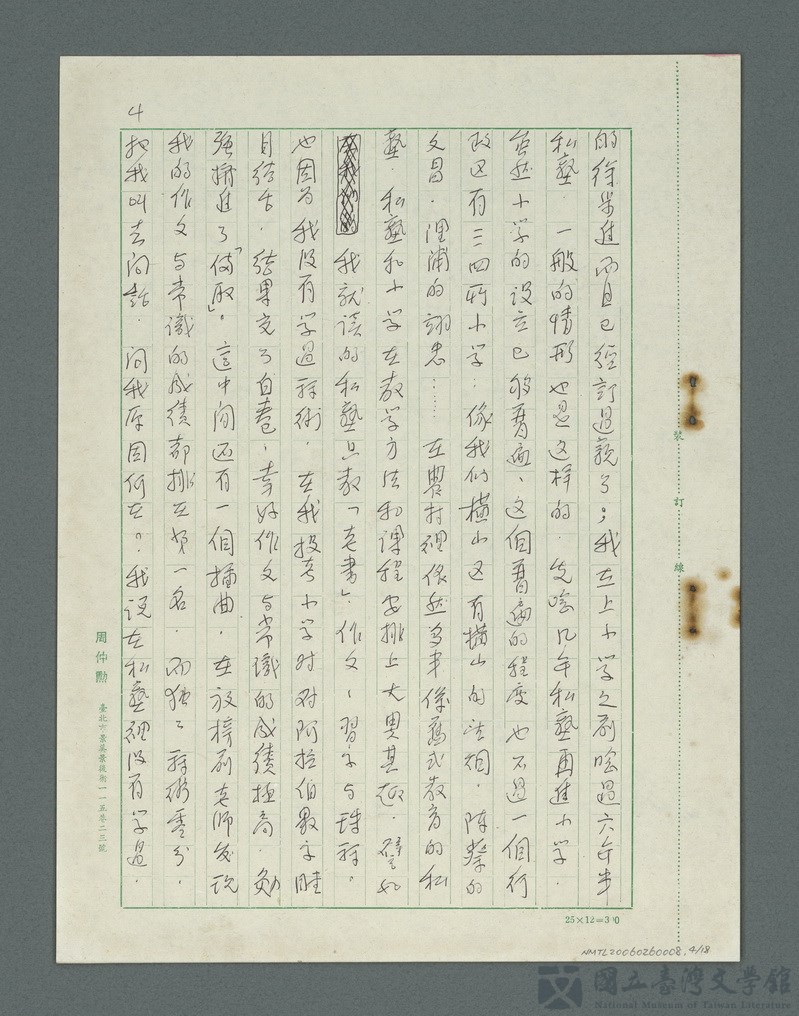 4
的徐步進而自已經訂過親了；我在上小学之前唸過六年半
私塾．一般的情形也是这样的．先唸几年私塾再進小学．
虽然小学的設立已够普遍、这個普遍的程度也不过一個行
政区有三四所小学：像我们横山区有横山的法烟．陣蔡的
文昌．浬浦的翊忠……在農村裡依然多半係舊式教育的私
塾．私塾和小学在教学方法和課程安排上大異其趣．譬如
我就读的私塾只教「老書」．作文、習字与珠祘。
也因为我没有学過祘術．在我投考小学时对阿拉伯數字瞠
目结舌．结果交了白卷．幸好作文与常識的成績極高．勉
強擠進了「備取」。這中間还有一個插曲．在放榜前老师发现
我的作文与常識的成績都排在第一名．而獨獨祘術零分．
把我叫去问話．问我原因何在？．我说在私塾裡没有学過．
裝訂線
周仲勳 臺北市景美景後街一一五巷二三號
25×12=300
NMTL20060260008. 4/18
國立臺灣文學館
National Museum of Taiwan Literature